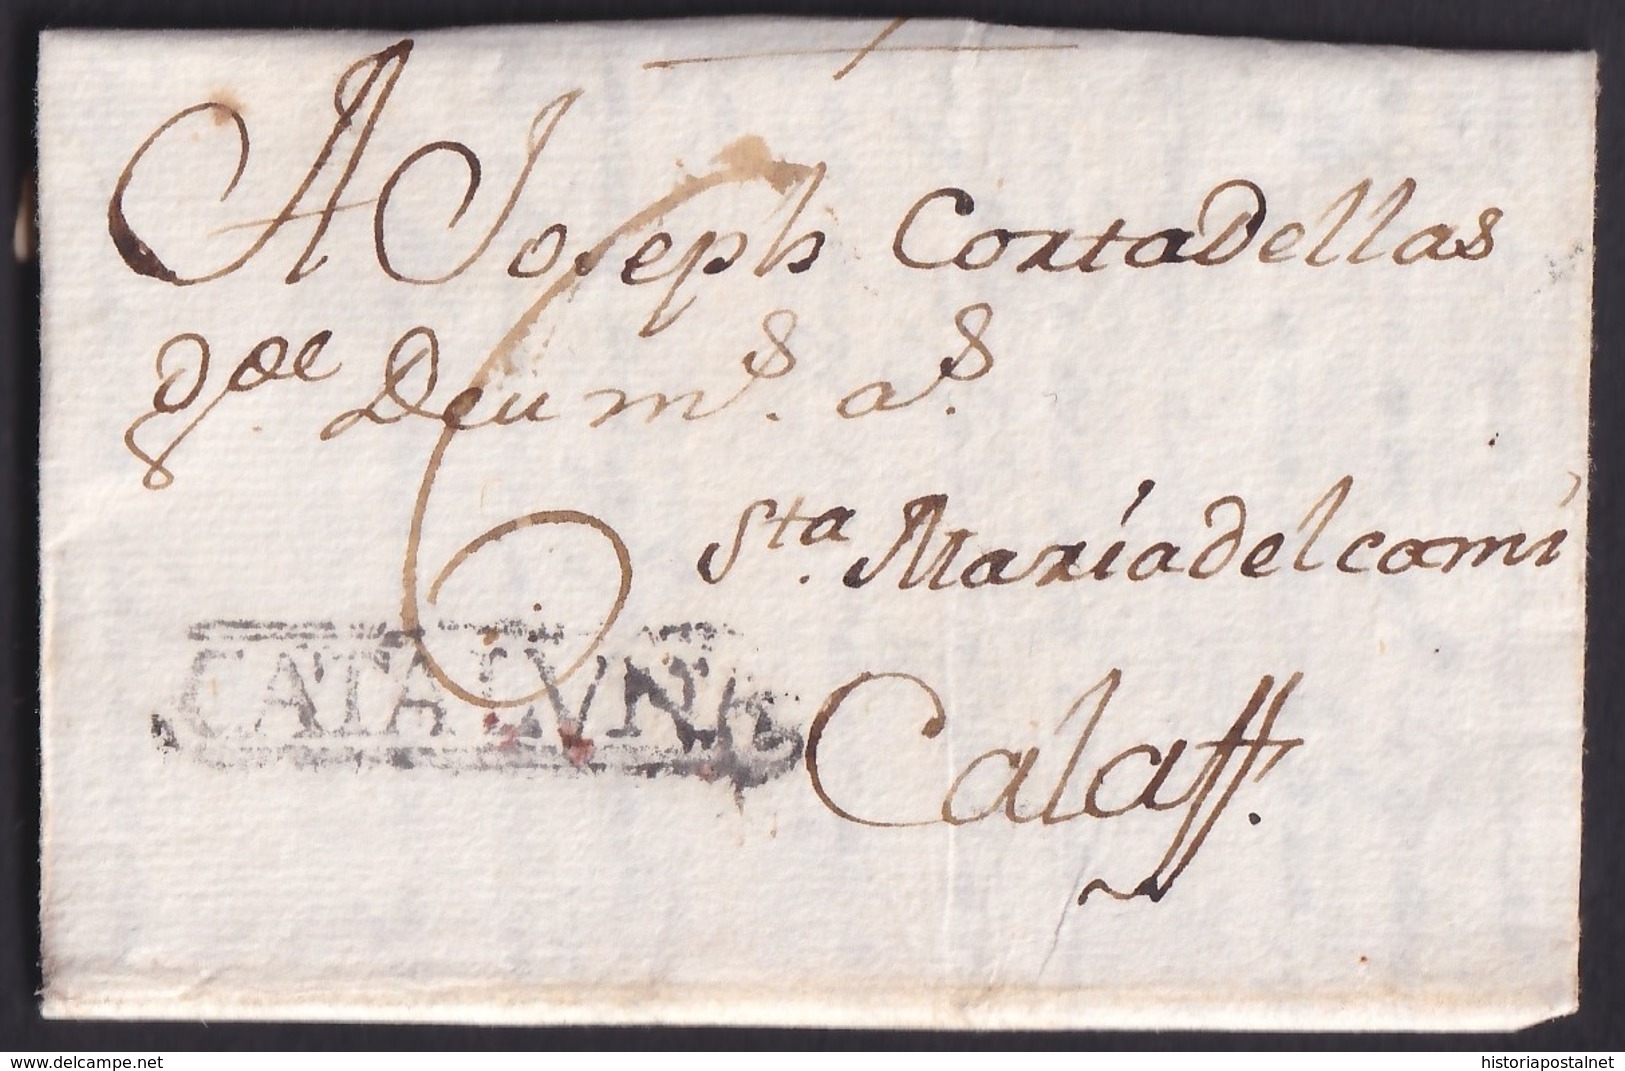 A Joseph Cortadellas
gde. Deu ms. as.
Sta. María del camí
CATALVNA
Calaff.
www.delcampe.net
historiapostalnet